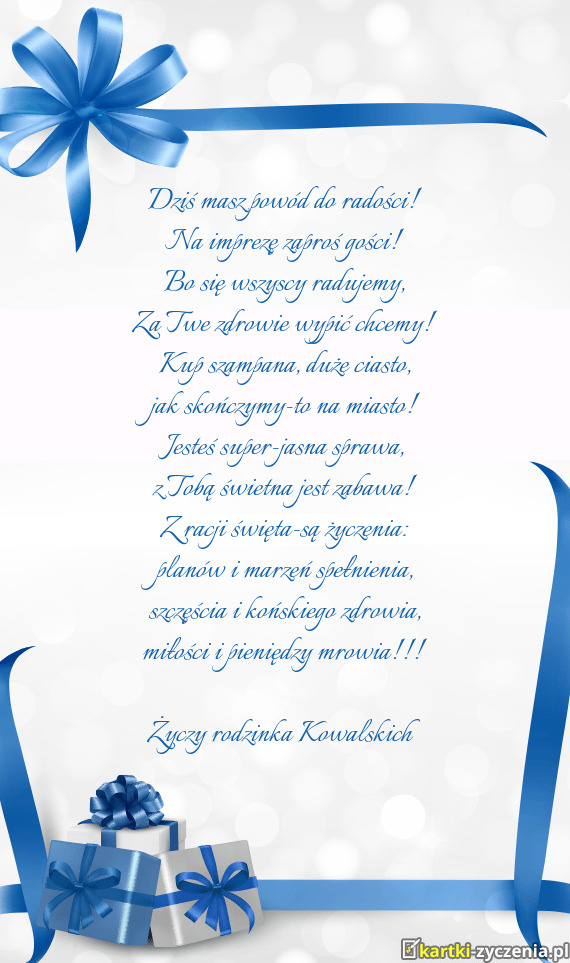 Dziś masz powód do radości!
Na imprezę zaproś gości!
Bo się wszyscy radujemy,
Za Twe zdrowie wypić chcemy!
Kup szampana, duże ciasto,
jak skończymy-to na miasto!
Jesteś super-jasna sprawa,
z Tobą świetna jest zabawa!
Z racji święta-są życzenia:
planów i marzeń spełnienia,
szczęścia i końskiego zdrowia,
miłości i pieniędzy mrowia!!!
Życzy rodzinka Kowalskich
kartki-zyczenia.pl